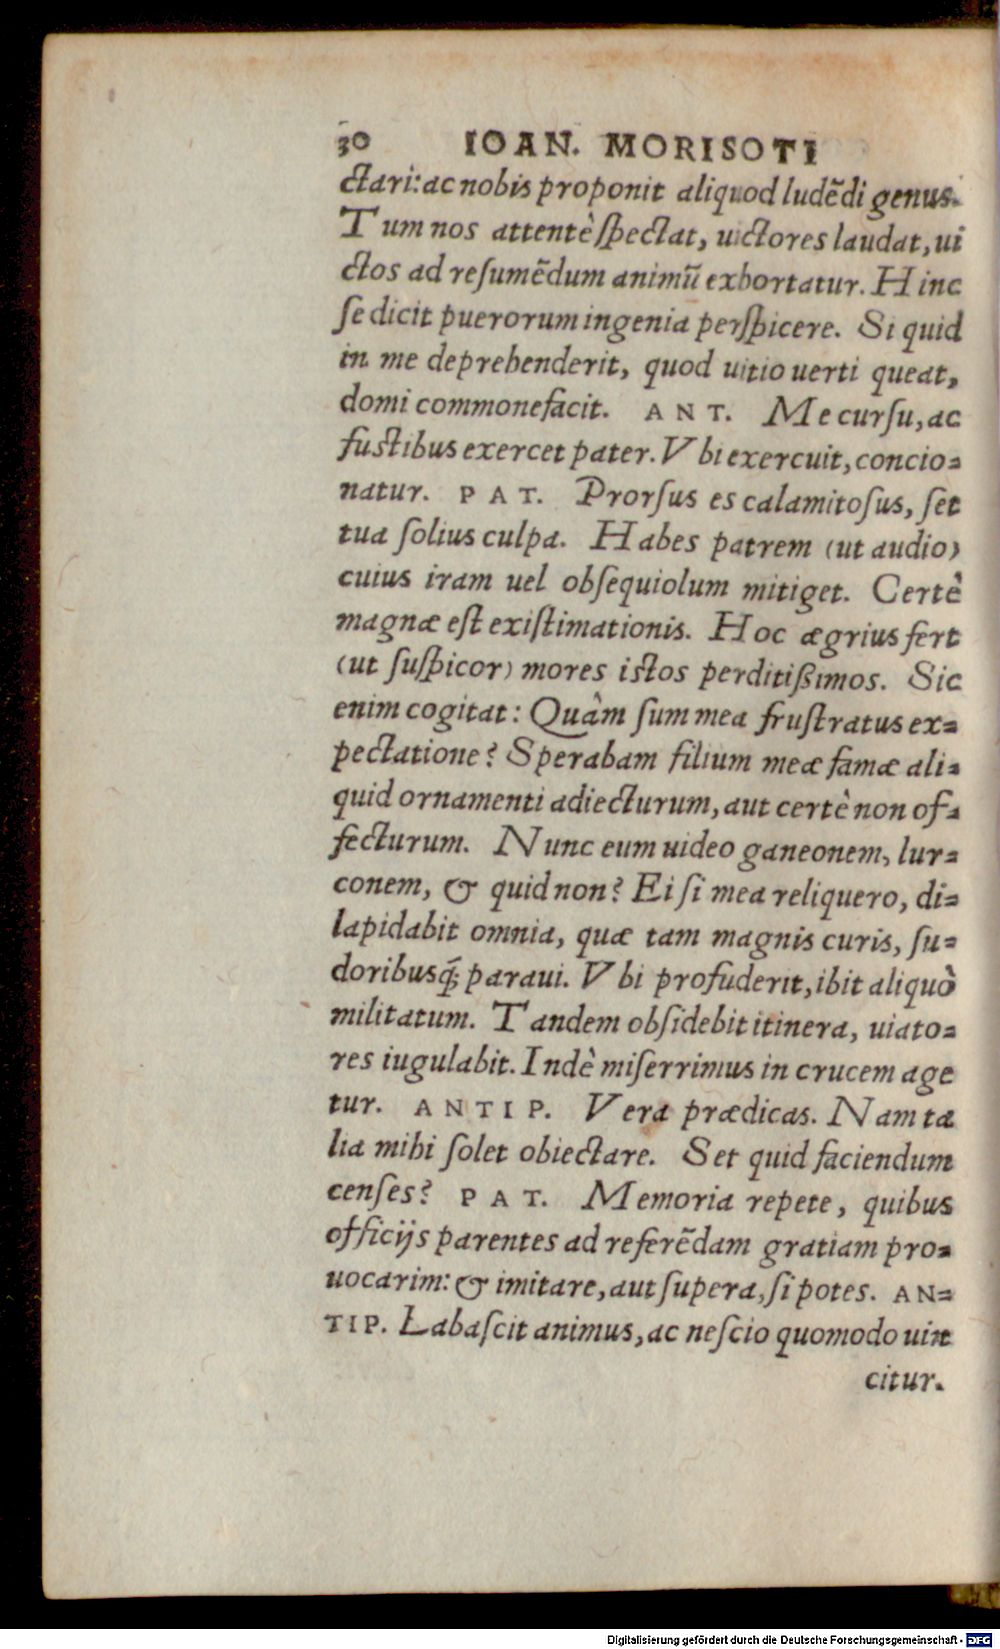 30 IOAN. MORISOTI
ctari: ac nobis proponit aliquod ludẽdi genus.
Tum nos attentè spectat, uictores laudat, ui
ctos ad resumẽdum animũ exhortatur. Hinc
se dicit puerorum ingenia perspicere. Si quid
in me deprehenderit, quod uitio uerti queat,
domi commonefacit. ANT. Me cursu, ac
fustibus exercet pater. Vbi exercuit, concio=
natur. PAT. Prorsus es calamitosus, set
tua solius culpa. Habes patrem (ut audio)
cuius iram uel obsequiolum mitiget. Certè
magnæ est existimationis. Hoc ægrius fert
(ut suspicor) mores istos perditißimos. Sic
enim cogitat: Quâm sum mea frustratus ex=
pectatione? Sperabam filium meæ famæ ali=
quid ornamenti adiecturum, aut certè non of=
fecturum. Nunc eum uideo ganeonem, lur=
conem, & quid non? Ei si mea reliquero, di=
lapidabit omnia, quæ tam magnis curis, su=
doribusq́; paraui. Vbi profuderit, ibit aliquò
militatum. Tandem obsidebit itinera, uiato=
res iugulabit. Indè miserrimus in crucem age
tur. ANTIP. Vera prædicas. Nam ta
lia mihi solet obiectare. Set quid faciendum
censes? PAT. Memoria repete, quibus
officijs parentes ad referẽdam gratiam pro=
uocarim: & imitare, aut supera, si potes. AN=
TIP. Labascit animus, ac nescio quomodo uin
citur.
Digitalisierung gefördert durch die Deutsche Forschungsgemeinschaft - DFG